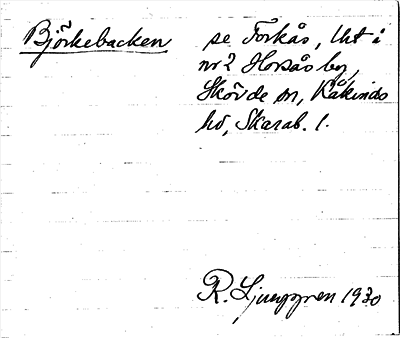 Björkebacken
se Forkås, Uht å
nr 2 Horsås by,
Skövde sn, Kåkinds
hd, Skarab. l.
R. Ljunggren 1930